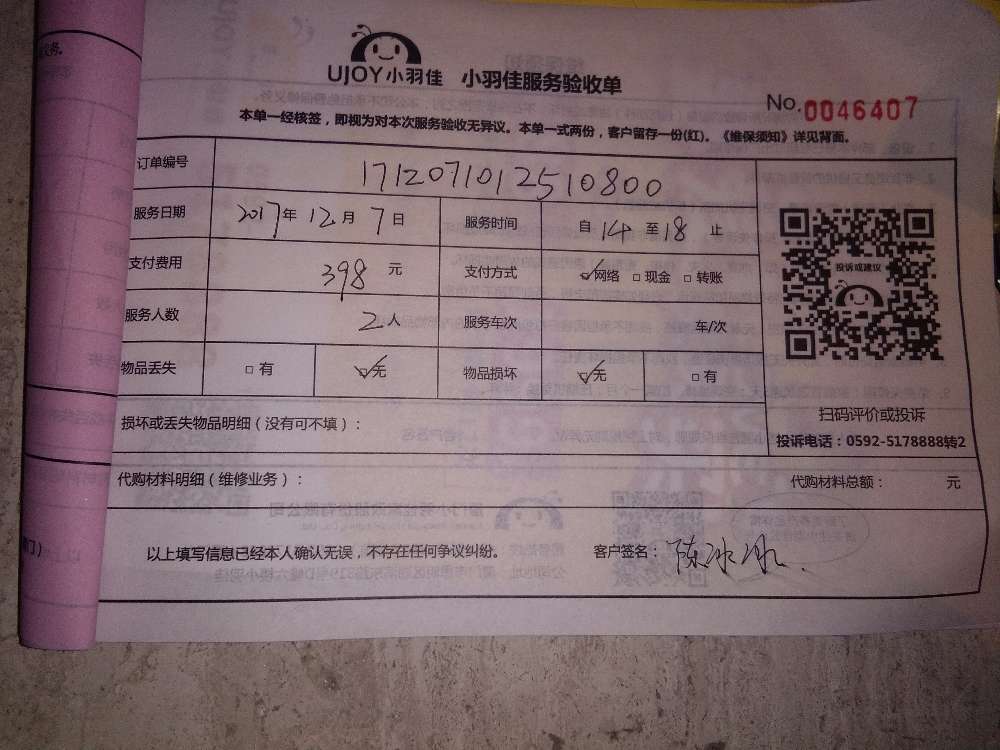 UJOY小羽佳 小羽佳服务验收单
No.0046407
本单一经核签，即视为对本次服务验收无异议。本单一式两份，客户留存一份(红)。《维保须知》详见背面。
订单编号 1712071012510800
服务日期 2017年12月7日 服务时间 自14至18止
支付费用 398元 支付方式 ☑网络 □现金 □转账
服务人数 2人 服务车次 车/次
物品丢失 □有 ☑无 物品损坏 ☑无 □有
投诉或建议
扫码评价或投诉
投诉电话：0592-5178888转2
损坏或丢失物品明细（没有可不填）：
代购材料明细（维修业务）： 代购材料总额： 元
以上填写信息已经本人确认无误，不存在任何争议纠纷。 客户签名：陈冰冰